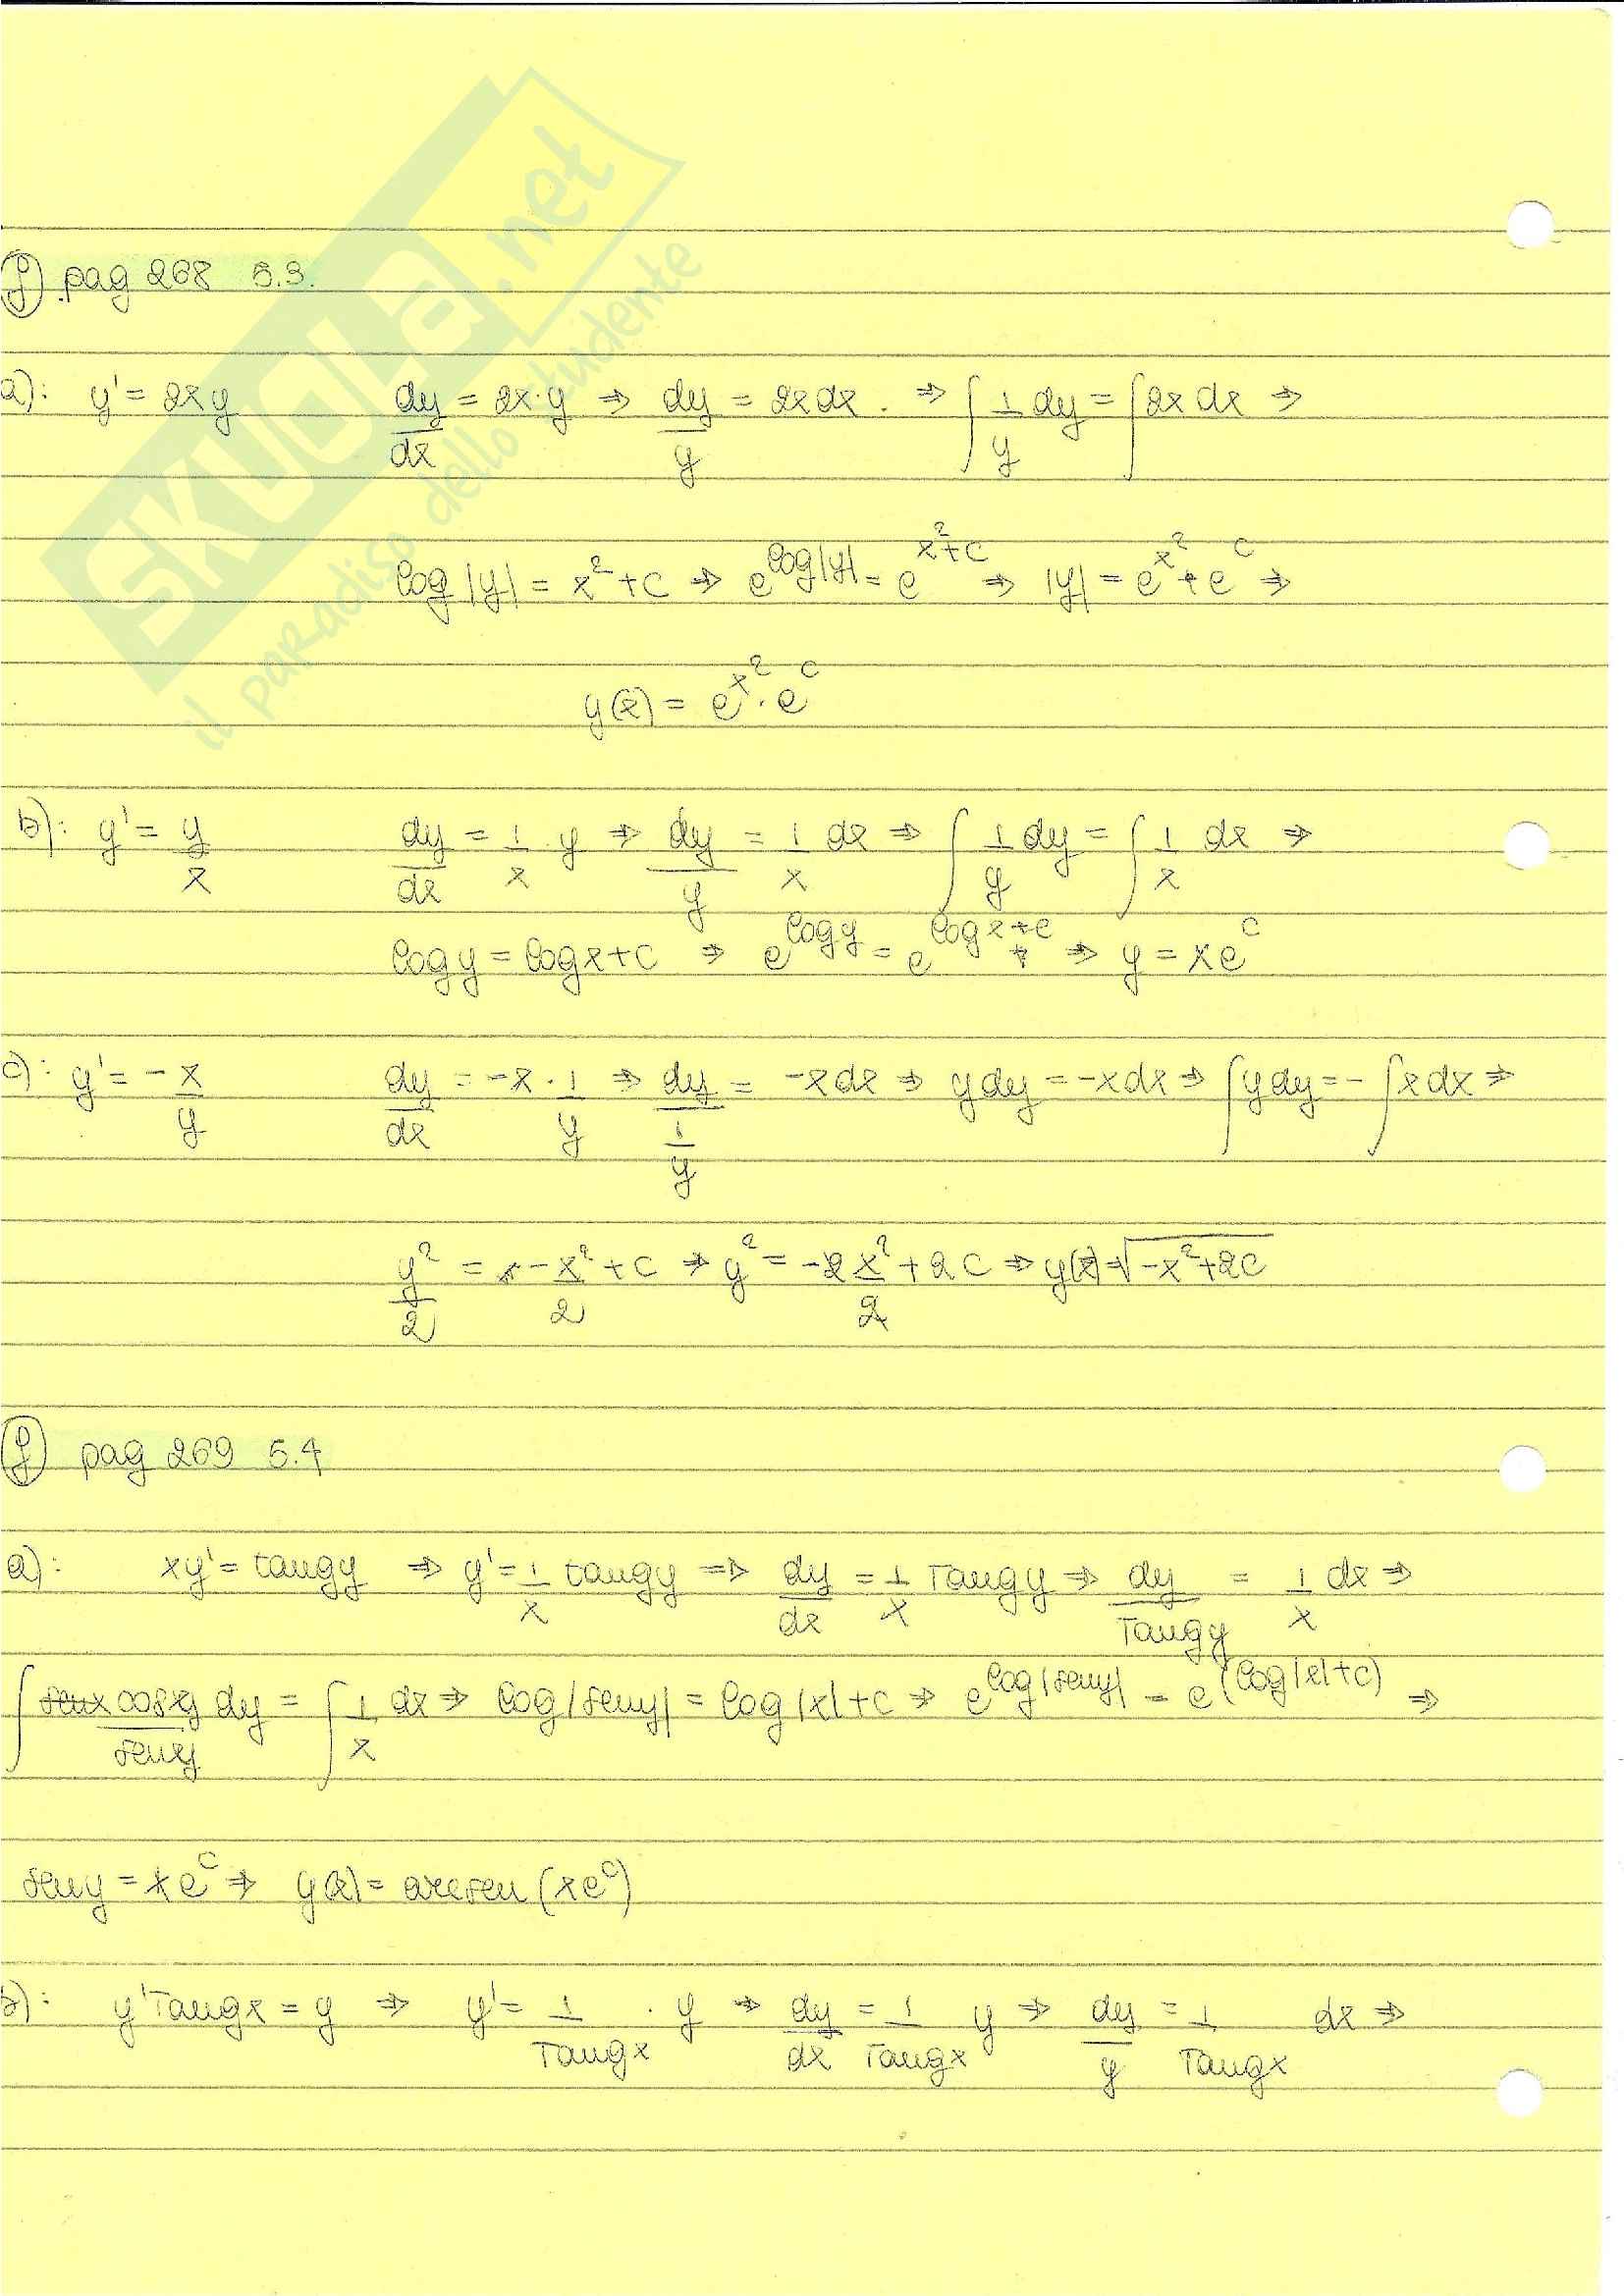 SKUOLA.net
il paradiso dello studente
pag 268 5.3.
a): y' = 2xy dy/dx = 2x·y ⇒ dy/y = 2x dx. ⇒ ∫ 1/y dy = ∫ 2x dx ⇒
log|y| = x² + c ⇒ e^(log|y|) = e^(x²+c) ⇒ |y| = e^(x²) · e^c ⇒
y(x) = e^(x²) · e^c
b): y' = y/x dy/dx = 1/x y ⇒ dy/y = 1/x dx ⇒ ∫ 1/y dy = ∫ 1/x dx ⇒
log y = log x + c ⇒ e^(log y) = e^(log x + c) ⇒ y = x e^c
c): y' = -x/y dy/dx = -x · 1/y ⇒ dy/(1/y) = -x dx ⇒ y dy = -x dx ⇒ ∫ y dy = - ∫ x dx ⇒
y²/2 = -x²/2 + c ⇒ y² = -2 x²/2 + 2c ⇒ y(x) = √(-x² + 2c)
pag 269 5.4
a): xy' = tang y ⇒ y' = 1/x tang y ⇒ dy/dx = 1/x Tang y ⇒ dy/Tang y = 1/x dx ⇒
∫ cos y/sen y dy = ∫ 1/x dx ⇒ log|sen y| = log|x| + c ⇒ e^(log|sen y|) = e^(log|x|+c) ⇒
sen y = x e^c ⇒ y(x) = arcsen (x e^c)
b): y' Tang x = y ⇒ y' = 1/Tang x · y ⇒ dy/dx = 1/Tang x y ⇒ dy/y = 1/Tang x dx ⇒